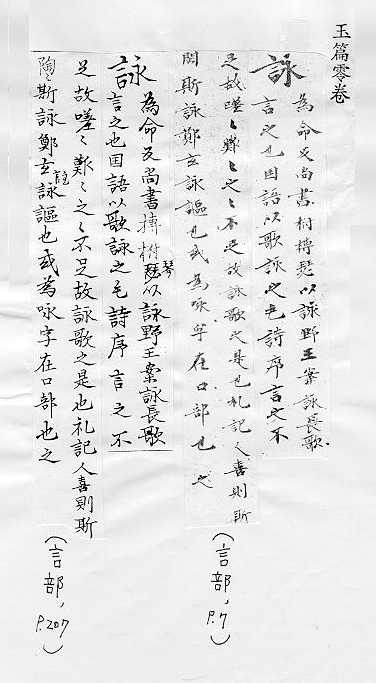 玉篇零卷
詠
為命反尚書樹搏瑟以詠野王案詠長歌
言之也国語以歌詠之毛詩序言之不
足故嗟〻難〻之〻不足故詠歌之是也札記人喜則斯
斯詠鄭玄詠謳也或為咏字在口部也之
(言部, P.7)
詠
為命反尚書搏拊琴瑟以詠野王案詠長歌
言之也国語以歌詠之毛詩序言之不
足故嗟〻難〻之〻不足故詠歌之是也札記人喜則斯
陶斯詠鄭玄詠謳也或為咏字在口部也之
(言部, P.207)